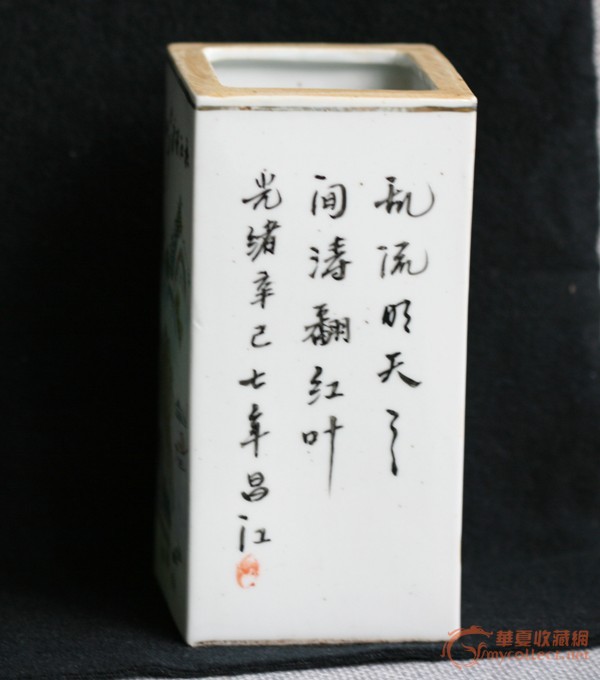 乱流明天之
间涛翻红叶
光绪辛己七年昌江
華夏收藏網
mycollect.com